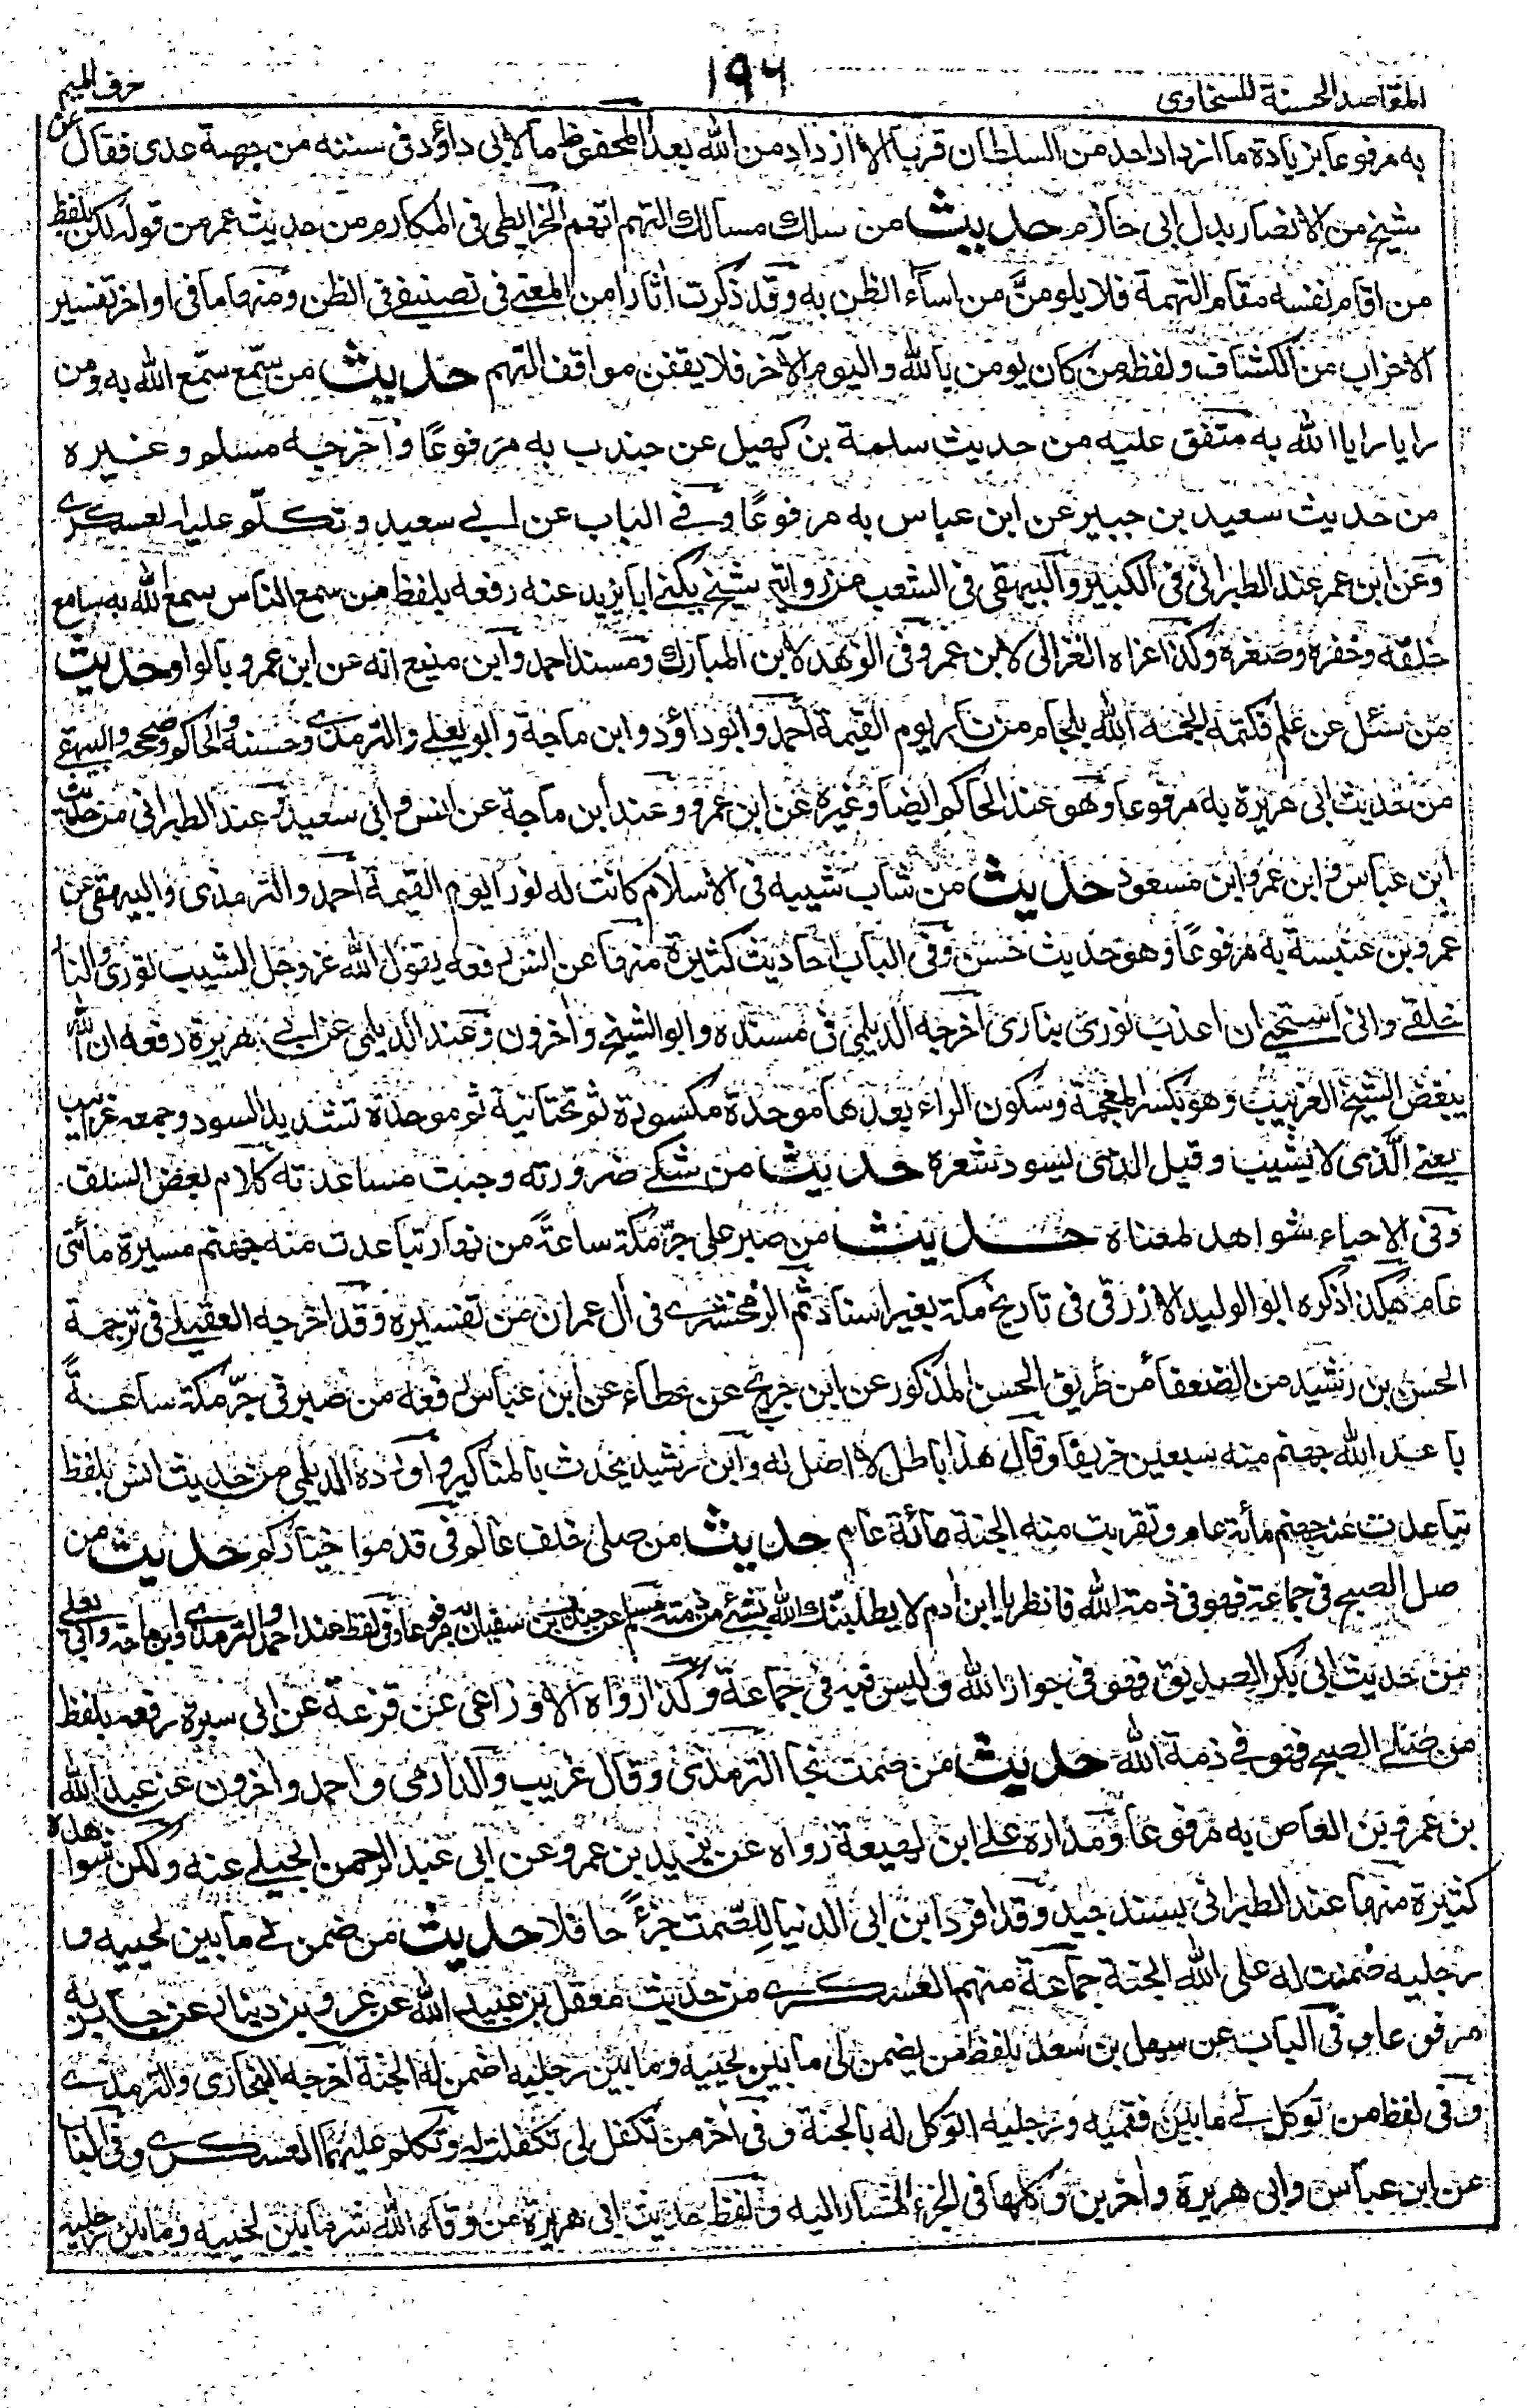 المقاصد الحسنة للسخاوى
١٩٦
حرف الميم
به مرفوعا بزيادة ما ازداد احد من السلطان قربا الا ازداد من الله بعدا المحفوظ ما لابى داؤد فى سننه من جهة عدى فقال عن
شيخ من الانصار بدل ابى حازم حديث من سلك مسالك التهم اتهم الخرايطى فى المكارم من حديث عمر من قوله لكن بلفظ
من اقام نفسه مقام التهمة فلا يلومنّ من اساء الظن به وقد ذكرت اثارا من المعنى فى تصنيفى فى الظن ومنها ما فى اواخر تفسير
الاحزاب من الكشاف ولفظه من كان يومن بالله واليوم الآخر فلا يقفن مواقف التهم حديث من سمّع سمّع الله به ومن
رايا رايا الله به متفق عليه من حديث سلمة بن كهيل عن جندب به مرفوعًا واخرجه مسلم وغيره
من حديث سعيد بن جبير عن ابن عباس به مرفوعًا وفى الباب عن ابى سعيد وتكلّم عليه العسكرى
وعن ابن عمر عند الطبرانى فى الكبير والبيهقى فى الشعب من رواية شيخ يكنى ابا يزيد عنه رفعه بلفظ من سمع الناس سمع الله به سامع
خلقه وحقره وصغره وكذا عزاه الغزالى لابن عمر وفى الزهد لابن المبارك ومسند احمد وابن منيع انه عن ابن عمرو بالواو حديث
من سئل عن علم فكتمه الجمه الله بلجام من نار يوم القيمة احمد وابو داؤد وابن ماجة وابو يعلى والترمذى وحسنه والحاكم وصححه والبيهقى
من حديث ابى هريرة به مرفوعا وهو عند الحاكم ايضا وغيره عن ابن عمرو وعند ابن ماجة عن انس وابى سعيد وعند الطبرانى من حديث
ابن عباس وابن عمر وابن مسعود حديث من شاب شيبه فى الاسلام كانت له نورا يوم القيمة احمد والترمذى والبيهقى عن
عمرو بن عنبسة به مرفوعًا وهو حديث حسن وفى الباب احاديث كثيرة منها عن انس رفعه يقول الله عز وجل الشيب نورى والنار
خلقى وانى استحيى ان اعذب نورى بنارى اخرجه الديلمى فى مسنده وابو الشيخ واخرون وعند الديلمى عن ابى هريرة رفعه ان الله
يبغض الشيخ الغربيب وهو بكسر المعجمة وسكون الراء بعدها موحدة مكسورة ثم تحتانية ثم موحدة تشديد السود وجمعه غرابيب
يعنى الّذى لا يشيب وقيل الذى يسود شعره حديث من شكى ضرورته وجبت مساعدته كلام بعض السلف
وفى الاحياء شواهد لمعناه حديث من صبر على حرّ مكة ساعةً من نهار تباعدت منه جهنم مسيرة مأتى
عام هكذا ذكره ابو الوليد الازرقى فى تاريخ مكة بغير اسناد ثم الزمخشرى فى ال عمران من تفسيره وقد اخرجه العقيلى فى ترجمة
الحسن بن رشيد من الضعفاء من طريق الحسن المذكور عن ابن جريج عن عطاء عن ابن عباس رفعه من صبر فى حرّ مكة ساعةً
باعد الله جهنم منه سبعين خريفا وقال هذا باطل لا اصل له وابن رشيد يحدث بالمناكير واورده الديلمى من حديث انس بلفظ
تباعدت عنه جهنم مأئة عام وتقربت منه الجنة مائة عام حديث من صلى خلف عالم فى قدموا خياركم حديث من
صل الصبح فى جماعة فهو فى ذمة الله فانظر يا ابن ادم لا يطلبنك الله بشئ من ذمته مسلم عن جندب بن سفيان به مرفوعا وفى لفظ عند احمد والترمذى وابن ماجة وابى يعلى
من حديث ابى بكر الصديق فهو فى جوار الله وليس فيه فى جماعة وكذا رواه الاوزاعى عن قزعة عن ابى سبرة رفعه بلفظ
من صلى الصبح فهو فى ذمة الله حديث من صمت نجا الترمذى وقال غريب والدارمى واحمد واخرون عن عبد الله
بن عمرو بن العاص به مرفوعا ومداره على ابن لهيعة رواه عن يزيد بن عمرو عن ابى عبد الرحمن الحبلى عنه ولكن شواهده
كثيرة منها عند الطبرانى بسند جيد وقد افرد ابن ابى الدنيا للصمت جزءً حافلا حديث من ضمن لى ما بين لحييه وما
رجليه ضمنت له على الله الجنة جماعة منهم العسكرى من حديث معقل بن عبيد الله عن عمرو بن دينار عن جابر به
مرفوعا وفى الباب عن سهل بن سعد بلفظ من يضمن لى ما بين لحييه وما بين رجليه اضمن له الجنة اخرجه البخارى والترمذى
وفى لفظ من توكل لى ما بين فقميه ورجليه اتوكل له بالجنة وفى اخر من تكفل لى تكفلت له وتكلم عليهما العسكرى وفى الباب
عن ابن عباس وابى هريرة واخرين وكلها فى الجزء المشار اليه ولفظ حديث ابى هريرة من وقاه الله شر ما بين لحييه وما بين رجليه